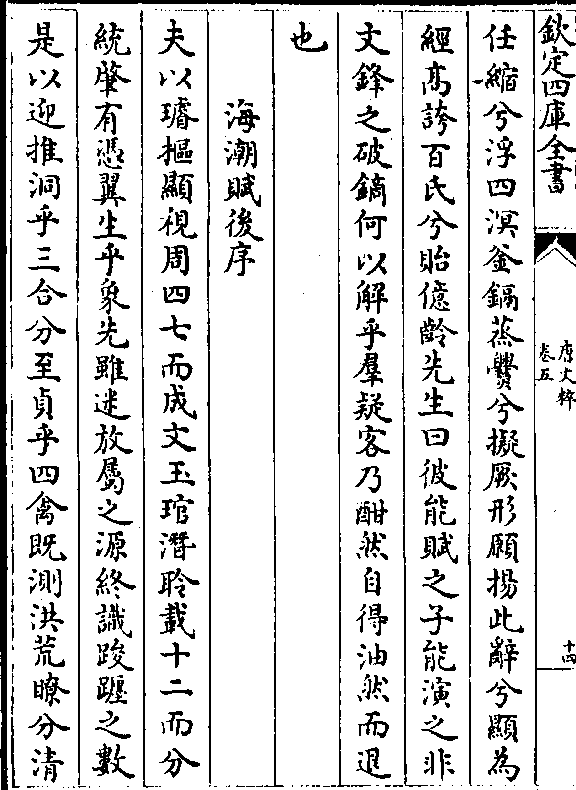 欽定四庫全書
唐文粹
卷五
十四
任縮兮浮四溟釜鍋蒸爨兮擬厥形願揚此辭兮顯為
經髙誇百氏兮貽億齡先生曰彼能賦之子能演之非
文鋒之破鏑何以解乎羣疑客乃酣然自得油然而退
也
海潮賦後序
夫以璿樞顯視周四七而成文玉琯潛聆載十二而分
統肇有憑翼生乎象先雖迷放屬之源終識踆躔之數
是以迎推洞乎三合分至貞乎四禽既測洪荒瞭分清